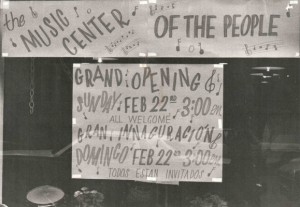 the MUSIC CENTER OF THE PEOPLE
GRAND OPENING
SUNDAY FEB 22ND 3:00 PM
ALL WELCOME
GRAN INAUGURACION
DOMINGO FEB 22ND 3:00 PM
TODOS ESTAN INVITADOS